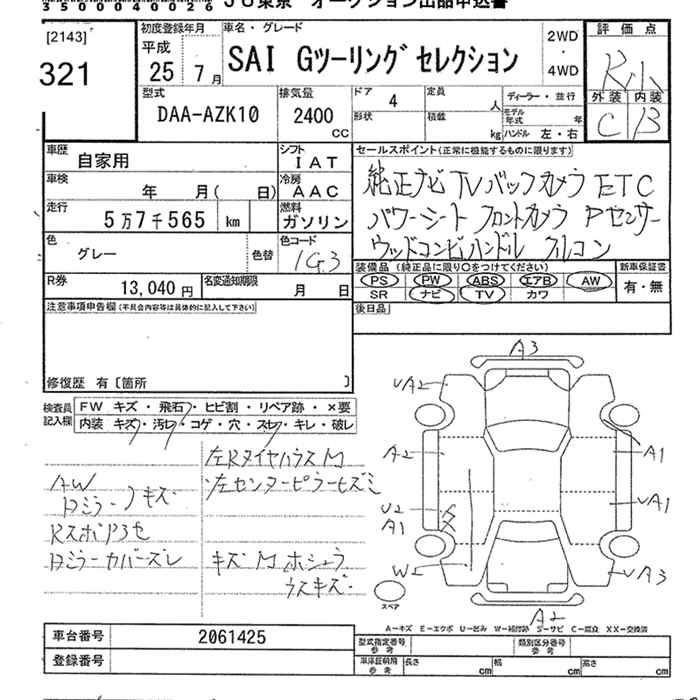 350000402026 JU東京 オークション出品申込書
[2143]
321
初度登録年月
平成
25年 7月
車名・グレード
SAI Gツーリングセレクション
2WD
・
4WD
評価点
外装 内装
C B
型式
DAA-AZK10
排気量
2400
CC
ドア
4
形状
定員
人
積載
kg
ディーラー・並行
モデル年式 年
ハンドル 左・右
車歴 自家用
シフト IAT
車検 年 月( 日)
冷房 AAC
走行 5万7千565 km
燃料 ガソリン
色 グレー
色替
色コード 1G3
R券 13,040円
名変通知期限 月 日
セールスポイント(正常に機能するものに限ります)
純正ナビ TV バックカメラ ETC
パワーシート フロントカメラ Pセンサー
ウッドコンビハンドル
装備品(純正品に限り○をつけてください)
PS PW ABS エアB AW
SR ナビ TV カワ
新車保証書
有・無
後日品
注意事項申告欄(不具合内容等は具体的に記入して下さい)
修復歴 有〔箇所 〕
検査員
記入欄
FW キズ・飛石・ヒビ割・リペア跡・×要
内装 キズ・汚レ・コゲ・穴・スレ・キレ・破レ
左RタイヤハウスM
AW
キズ
左センターピラーヒズミ
ミラーカバーズレ
キズ M ホシュウ
ウスキズ
A3
UA2
A2
A1
U2
A1
UA1
W2
UA3
A2
スペア
A-キズ E-エクボ U-凹み W-補修跡 S-サビ C-腐食 XX-交換済
車台番号 2061425
登録番号
型式指定番号
参考
類別区分番号
参考
車庫証明用
参考
長さ cm
幅 cm
高さ cm